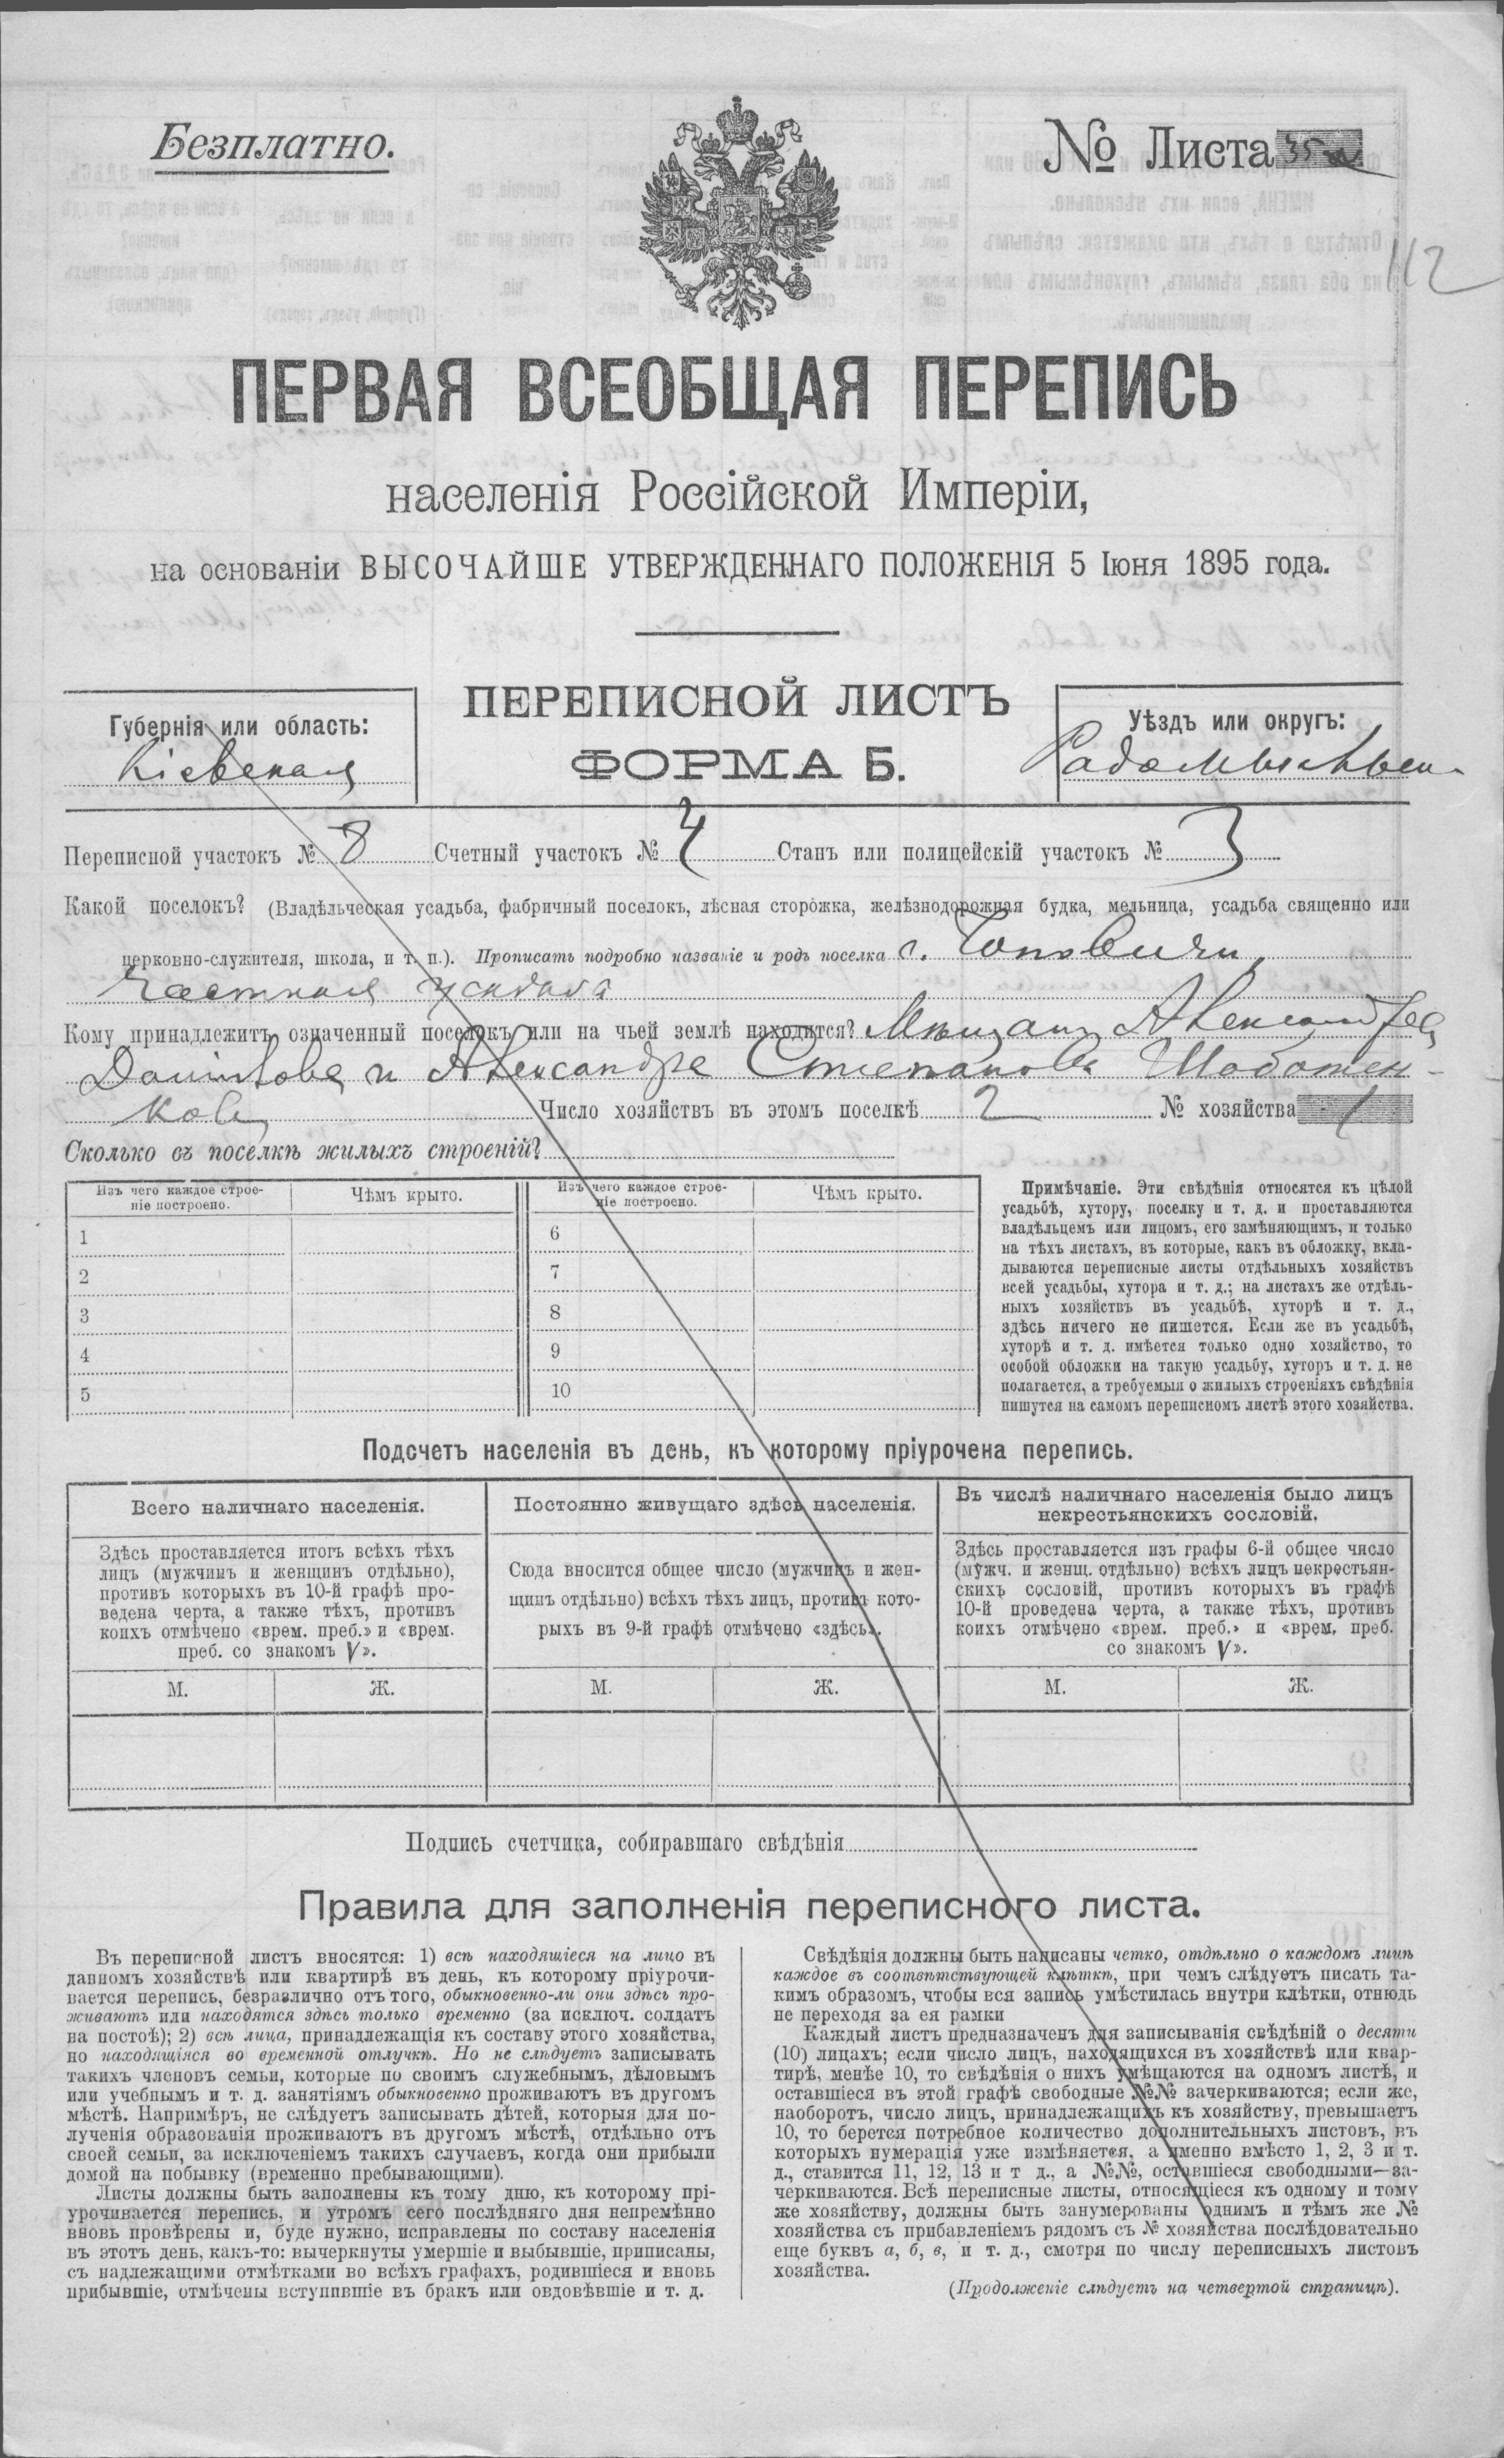 Безплатно.
№ Листа 35
112
ПЕРВАЯ ВСЕОБЩАЯ ПЕРЕПИСЬ
населенія Россійской Имперіи,
на основаніи ВЫСОЧАЙШЕ УТВЕРЖДЕННАГО ПОЛОЖЕНІЯ 5 Іюня 1895 года.
ПЕРЕПИСНОЙ ЛИСТЪ
ФОРМА Б.
Губернія или область:
Кіевская
Уѣздъ или округъ:
Радомысльск.
Переписной участокъ № 8 Счетный участокъ № 4 Станъ или полицейскій участокъ № 3
Какой поселокъ? (Владѣльческая усадьба, фабричный поселокъ, лѣсная сторожка, желѣзнодорожная будка, мельница, усадьба священно или
церковно-служителя, школа, и т. п.). Прописать подробно названіе и родъ поселка с. Чоповичи,
частная усадьба
Кому принадлежитъ означенный поселокъ или на чьей землѣ находится? Мѣщанъ Александра
Данилова и Александра Степанова Шаботен-
кова Число хозяйствъ въ этомъ поселкѣ 2 № хозяйства 1
Сколько въ поселкѣ жилыхъ строеній?
Изъ чего каждое строе-
ніе построено.
Чѣмъ крыто.
Изъ чего каждое строе-
ніе построено.
Чѣмъ крыто.
1 6
2 7
3 8
4 9
5 10
Примѣчаніе. Эти свѣдѣнія относятся къ цѣлой
усадьбѣ, хутору, поселку и т. д. и проставляются
владѣльцемъ или лицомъ, его замѣняющимъ, и только
на тѣхъ листахъ, въ которые, какъ въ обложку, вкла-
дываются переписные листы отдѣльныхъ хозяйствъ
всей усадьбы, хутора и т. д.; на листахъ же отдѣль-
ныхъ хозяйствъ въ усадьбѣ, хуторѣ и т. д.,
здѣсь ничего не пишется. Если же въ усадьбѣ,
хуторѣ и т. д. имѣется только одно хозяйство, то
особой обложки на такую усадьбу, хуторъ и т. д. не
полагается, а требуемыя о жилыхъ строеніяхъ свѣдѣнія
пишутся на самомъ переписномъ листѣ этого хозяйства.
Подсчетъ населенія въ день, къ которому пріурочена перепись.
Всего наличнаго населенія.
Здѣсь проставляется итогъ всѣхъ тѣхъ
лицъ (мужчинъ и женщинъ отдѣльно),
противъ которыхъ въ 10-й графѣ про-
ведена черта, а также тѣхъ, противъ
коихъ отмѣчено «врем. преб.» и «врем.
преб. со знакомъ V».
М. Ж.
Постоянно живущаго здѣсь населенія.
Сюда вносится общее число (мужчинъ и жен-
щинъ отдѣльно) всѣхъ тѣхъ лицъ, противъ кото-
рыхъ въ 9-й графѣ отмѣчено «здѣсь».
М. Ж.
Въ числѣ наличнаго населенія было лицъ
некрестьянскихъ сословій.
Здѣсь проставляется изъ графы 6-й общее число
(мужч. и женщ. отдѣльно) всѣхъ лицъ некрестьян-
скихъ сословій, противъ которыхъ въ графѣ
10-й проведена черта, а также тѣхъ, противъ
коихъ отмѣчено «врем. преб.» и «врем. преб.
со знакомъ V».
М. Ж.
Подпись счетчика, собиравшаго свѣдѣнія
Правила для заполненія переписного листа.
Въ переписной листъ вносятся: 1) всѣ находящіеся на лицо въ
данномъ хозяйствѣ или квартирѣ въ день, къ которому пріурочи-
вается перепись, безразлично отъ того, обыкновенно-ли они здѣсь про-
живаютъ или находятся здѣсь только временно (за исключ. солдатъ
на постоѣ); 2) всѣ лица, принадлежащія къ составу этого хозяйства,
но находящіяся во временной отлучкѣ. Но не слѣдуетъ записывать
такихъ членовъ семьи, которые по своимъ служебнымъ, дѣловымъ
или учебнымъ и т. д. занятіямъ обыкновенно проживаютъ въ другомъ
мѣстѣ. Напримѣръ, не слѣдуетъ записывать дѣтей, которыя для по-
лученія образованія проживаютъ въ другомъ мѣстѣ, отдѣльно отъ
своей семьи, за исключеніемъ такихъ случаевъ, когда они прибыли
домой на побывку (временно пребывающими).
Листы должны быть заполнены къ тому дню, къ которому прі-
урочивается перепись, и утромъ сего послѣдняго дня непремѣнно
вновь провѣрены и, буде нужно, исправлены по составу населенія
въ этотъ день, какъ-то: вычеркнуты умершіе и выбывшіе, приписаны,
съ надлежащими отмѣтками во всѣхъ графахъ, родившіеся и вновь
прибывшіе, отмѣчены вступившіе въ бракъ или овдовѣвшіе и т. д.
Свѣдѣнія должны быть написаны четко, отдѣльно о каждомъ лицѣ
каждое въ соотвѣтствующей клѣткѣ, при чемъ слѣдуетъ писать та-
кимъ образомъ, чтобы вся запись умѣстилась внутри клѣтки, отнюдь
не переходя за ея рамки
Каждый листъ предназначенъ для записыванія свѣдѣній о десяти
(10) лицахъ; если число лицъ, находящихся въ хозяйствѣ или квар-
тирѣ, менѣе 10, то свѣдѣнія о нихъ умѣщаются на одномъ листѣ, и
оставшіеся въ этой графѣ свободные №№ зачеркиваются; если же,
наоборотъ, число лицъ, принадлежащихъ къ хозяйству, превышаетъ
10, то берется потребное количество дополнительныхъ листовъ, въ
которыхъ нумерація уже измѣняется, а именно вмѣсто 1, 2, 3 и т.
д., ставится 11, 12, 13 и т д., а №№, оставшіеся свободными—за-
черкиваются. Всѣ переписные листы, относящіеся къ одному и тому
же хозяйству, должны быть занумерованы однимъ и тѣмъ же №
хозяйства съ прибавленіемъ рядомъ съ № хозяйства послѣдовательно
еще буквъ а, б, в, и т. д., смотря по числу переписныхъ листовъ
хозяйства.
(Продолженіе слѣдуетъ на четвертой страницѣ).